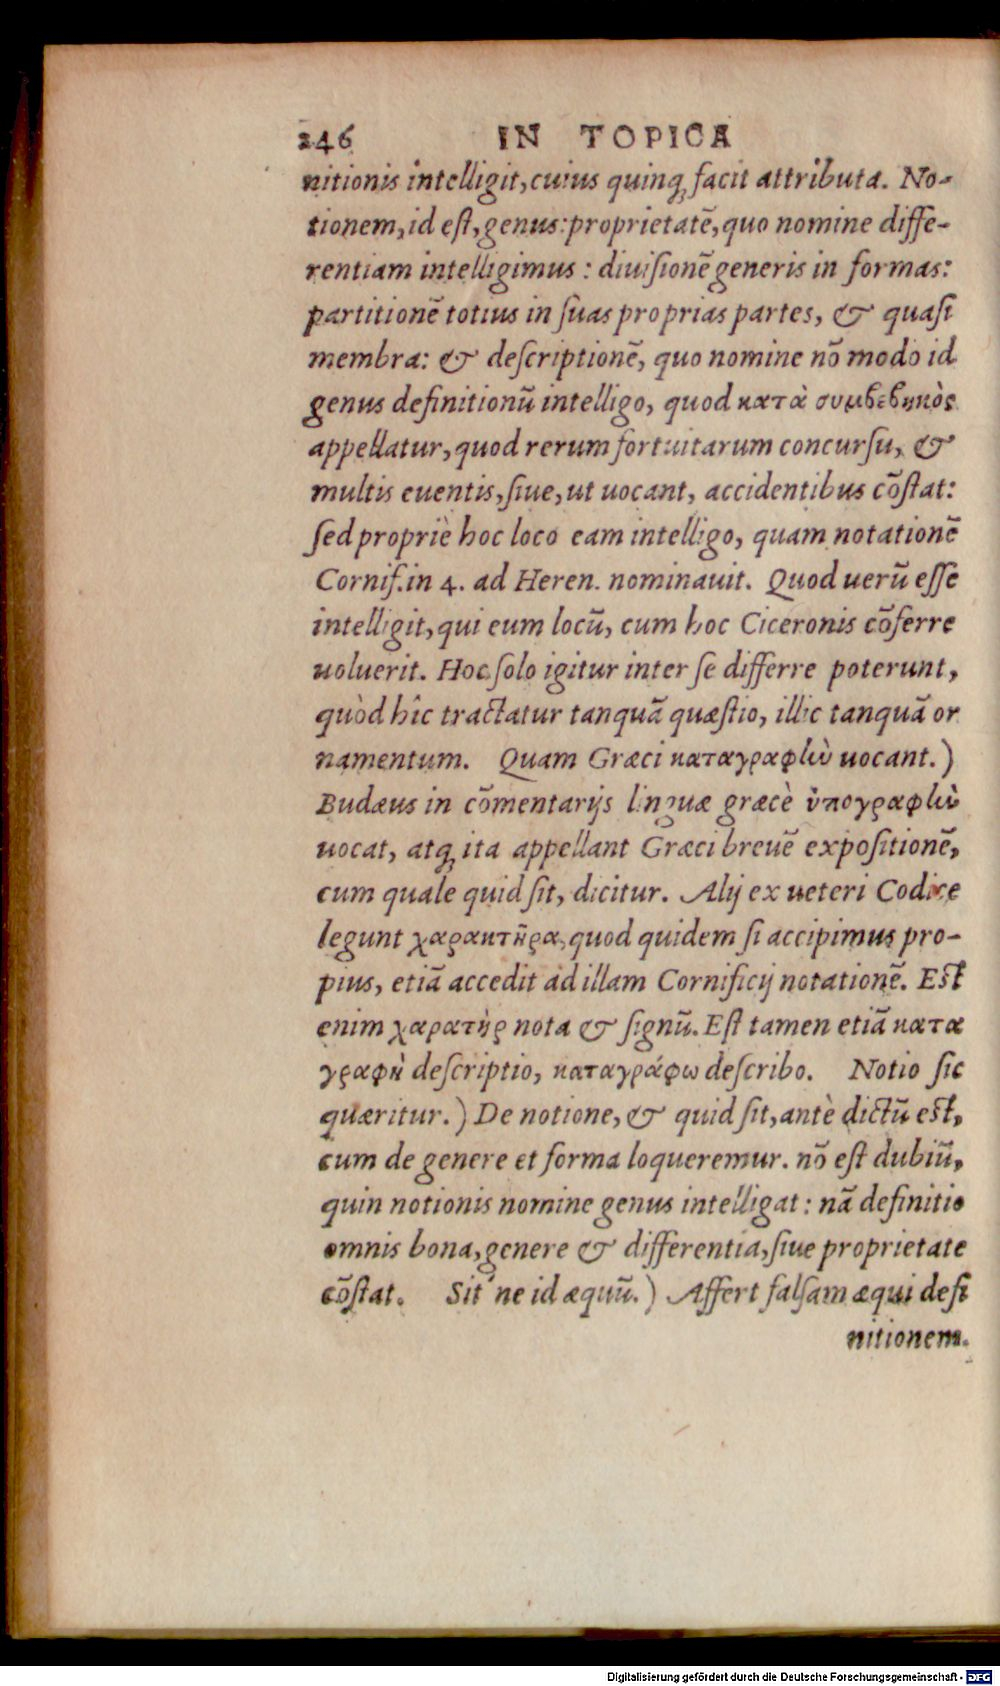 246 IN TOPICA
nitionis intelligit, cuius quinq; facit attributa. No-
tionem, id est, genus: proprietatē, quo nomine diffe-
rentiam intelligimus : diuisionē generis in formas:
partitionē totius in suas proprias partes, & quasi
membra: & descriptionē, quo nomine nō modo id
genus definitionū intelligo, quod κατὰ συμβεβηκὸς
appellatur, quod rerum fortuitarum concursu, &
multis euentis, siue, ut uocant, accidentibus cōstat:
sed propriè hoc loco eam intelligo, quam notationē
Cornif. in 4. ad Heren. nominauit. Quod uerū esse
intelligit, qui eum locū, cum hoc Ciceronis cōferre
uoluerit. Hoc solo igitur inter se differre poterunt,
quòd hîc tractatur tanquā quæstio, illic tanquā or
namentum. Quam Græci καταγραφὴν uocant.)
Budæus in cōmentarijs linguæ græcè ὑπογραφὴν
uocat, atq; ita appellant Græci breuē expositionē,
cum quale quid sit, dicitur. Alij ex ueteri Codice
legunt χαρακτῆρα, quod quidem si accipimus pro-
pius, etiā accedit ad illam Cornificij notationē. Est
enim χαρατὴρ nota & signū. Est tamen etiā κατα
γραφὴ descriptio, καταγράφω describo. Notio sic
quæritur.) De notione, & quid sit, antè dictū est,
cum de genere et forma loqueremur. nō est dubiū,
quin notionis nomine genus intelligat : nā definitio
omnis bona, genere & differentia, siue proprietate
cōstat. Sit' ne id æquū.) Affert falsam æqui defi
nitionem.
Digitalisierung gefördert durch die Deutsche Forschungsgemeinschaft - DFG